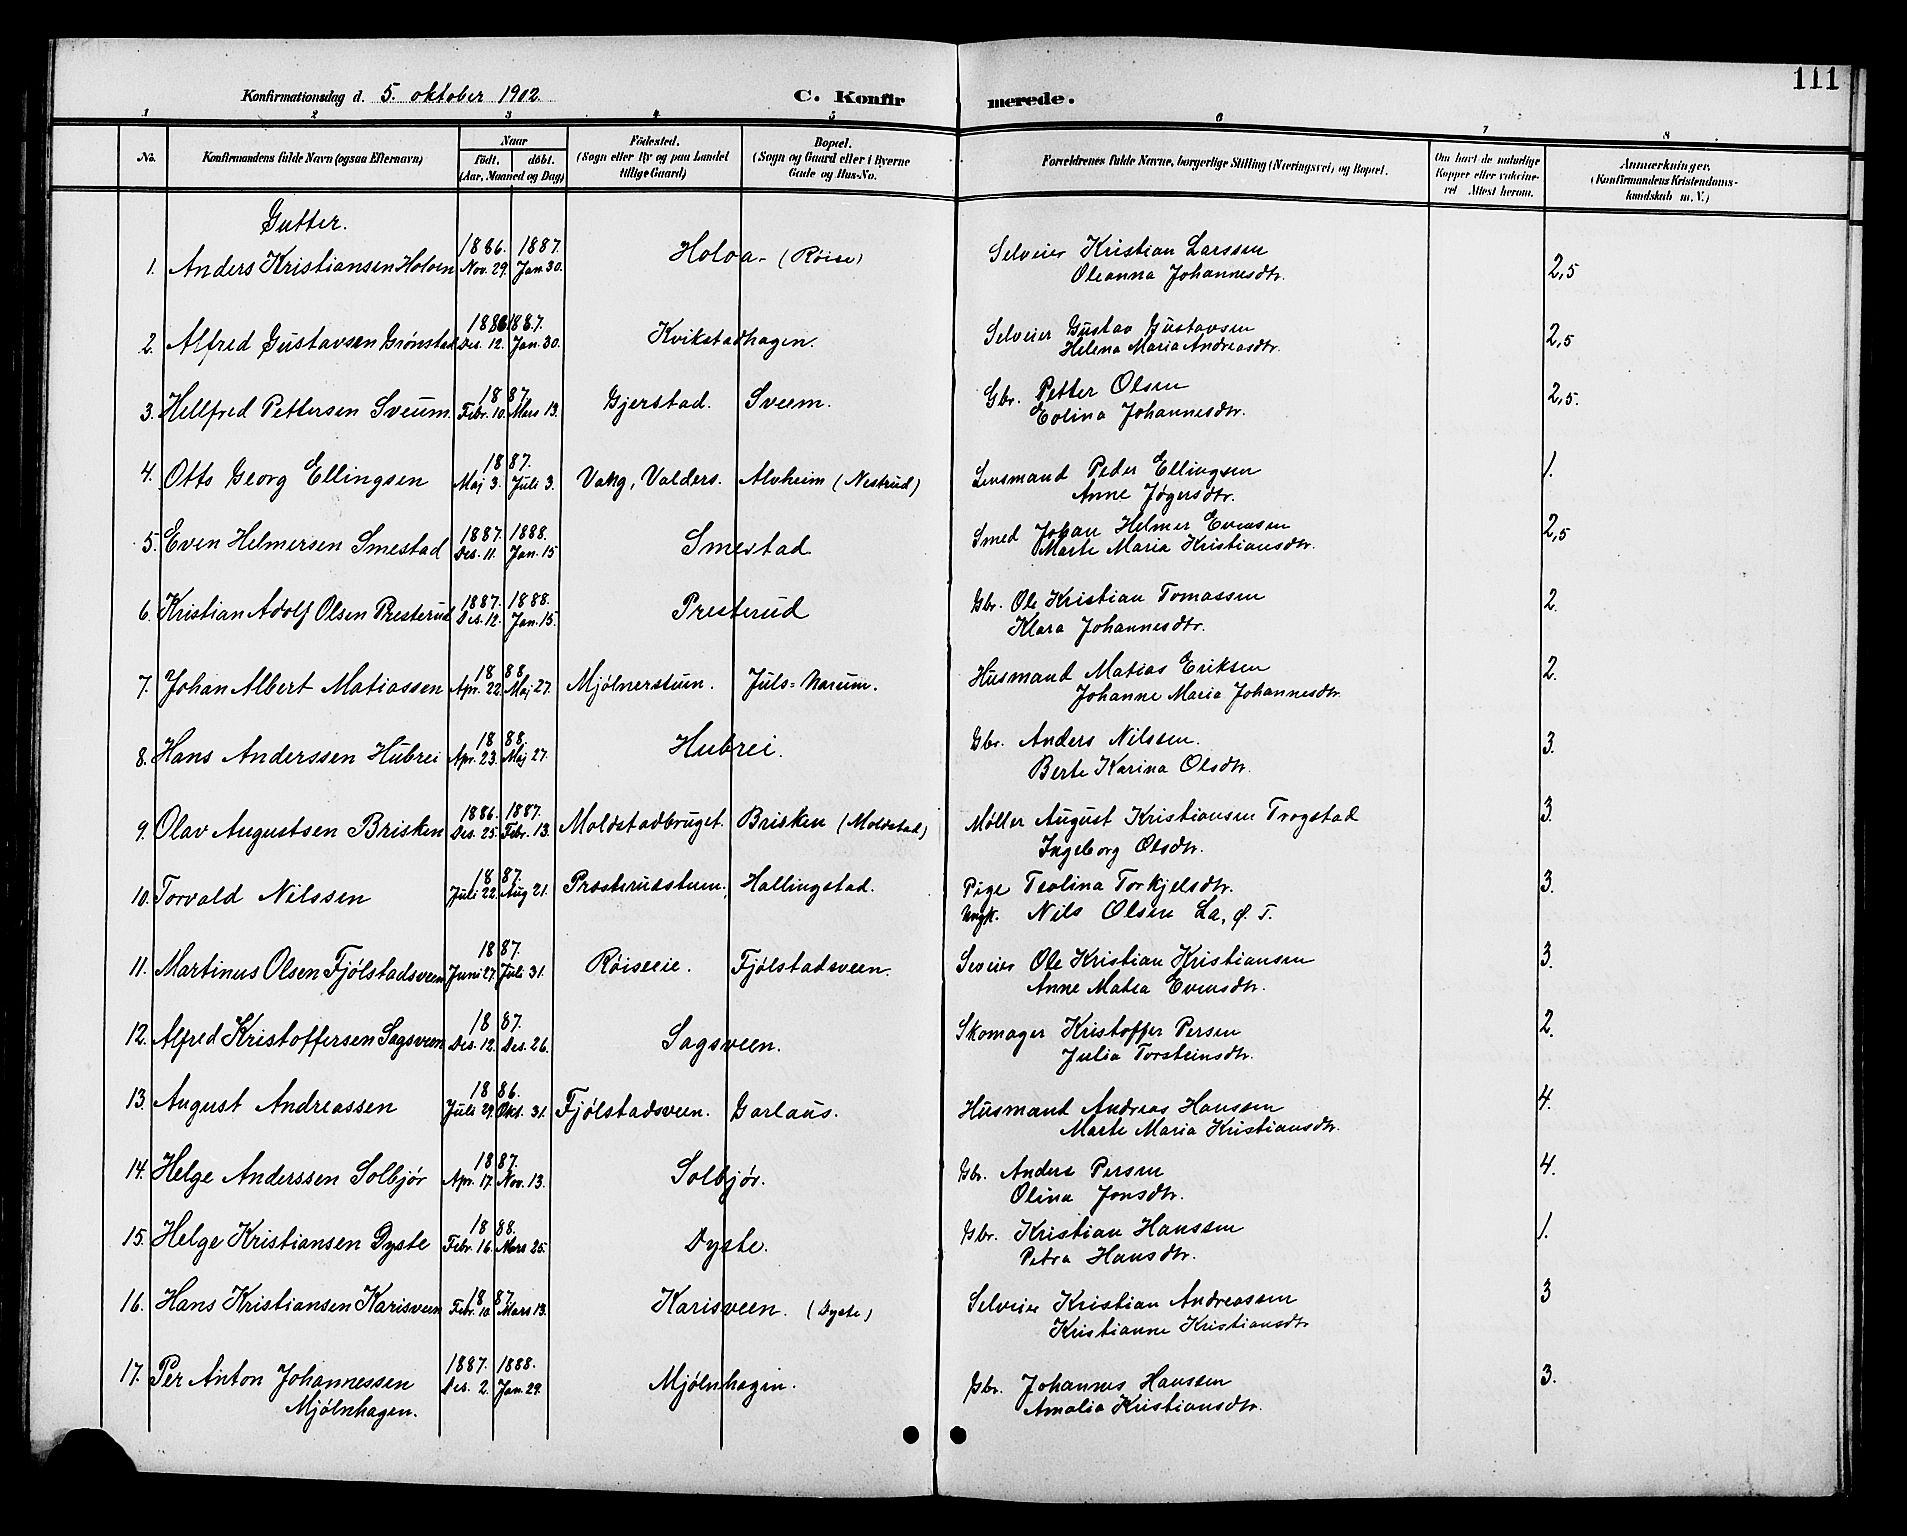 111
Konfirmationsdag d. 5. oktober 1902. C. Konfirmerede.
1 2 3 4 5 6 7 8
No. Konfirmandens fulde Navn (ogsaa Efternavn) Naar födt, döbt. (Aar, Maaned og Dag) Födested. (Sogn eller By og paa Landet tillige Gaard) Bopæl. (Sogn og Gaard eller i Byerne Gade og Hus-No. Forældrenes fulde Navne, borgerlige Stilling (Næringsvei) og Bopæl. Om havt de naturlige Kopper eller vakcineret Attest herom. Anmærkninger. (Konfirmandens Kristendomskundskab m. V.)
Gutter.
1. Anders Kristiansen Holoen 1886. Nov. 29. 1887. Jan. 30. Holoa. (Røise) Selveier Kristian Larssen 2,5
Oleanna Johannesdtr.
2. Alfred Gustavsen Grønstad 1886. Des. 12. 1887. Jan. 30. Kvikstadhagen. Selveier Gustav Gustavsen 2,5
Helena Maria Andreasdtr.
3. Hellfred Pettersen Sveum. 1887. Febr. 10. Mars 13. Gjerstad. Sveem. Gbr. Petter Olsen 2,5.
Eolina Johannesdtr.
4. Otto Georg Ellingsen 1887. Maj 3. Juli 3. Vang, Valders. Alvheim (Nestrud) Lensmand Peder Ellingsen 1.
Anne Jøgersdtr.
5. Even Helmersen Smestad 1887. Des. 11. 1888. Jan. 15 Smestad Smed Johan Helmer Evensen 2,5
Marte Maria Kristiansdtr.
6. Kristian Adolf Olsen Presterud 1887. Des. 12. 1888. Jan. 15. Presterud Gbr. Ole Kristian Tomassen 2.
Klara Johannesdtr.
7. Johan Albert Matiassen 1888 Apr. 22. Maj 27. Mjølnerstun. Juls=Narum. Husmand Matias Eriksen 2.
Johanne Maria Johannesdtr.
8. Hans Anderssen Hubrei 1888. Apr. 23. Maj 27. Hubrei. Gbr. Anders Nilssen. 3.
Berte Karina Olsdtr.
9. Olav Augustsen Brisken 1886. Des. 25. 1887. Febr. 13. Moldstadbruget. Brisken (Moldstad) Møller August Kristiansen Trogstad 3.
Ingeborg Olsdtr.
10. Torvald Nilssen 1887. Juli 22. Aug 21. Præsterudstuen. Hallingstad. Pige Teolina Torkjelsdtr. 3.
Ungk. Nils Olsen La, Ø. T.
11. Martinus Olsen Fjølstadsveen 1887. Juni 27. Juli 31. Røiseeie. Fjølstadsveen. Sveier Ole Kristian Kristiansen 3.
Anne Matea Evensdtr.
12. Alfred Kristoffersen Sagsveen 1887. Des. 12. Des. 26. Sagsveen. Skomager Kristoffer Persen 2.
Julia Torsteinsdtr.
13. August Andreassen 1886. Juli 29. Okt. 31. Fjølstadsveen. Garlaus. Husmand Andreas Hanssen 4.
Marte Maria Kristiansdtr.
14. Helge Anderssen Solbjør 1887. Apr. 17. Nov. 13. Solbjør. Gbr. Anders Persen 4.
Olina Jonsdtr.
15. Helge Kristiansen Dyste 1888. Febr. 16. Mars 25. Dyste. Gbr. Kristian Hanssen 1.
Petra Hansdtr.
16. Hans Kristiansen Karisveen 1887. Febr. 10. Mars 13. Karisveen. (Dyste) Selveier Kristian Andreassen 3
Kristianne Kristiansdtr
17. Per Anton Johannessen 1887. Des. 2. 1888. Jan. 29. Mjølnhagen. Gbr. Johannes Hanssen 3.
Mjølnhagen. Amalia Kristiansdtr.